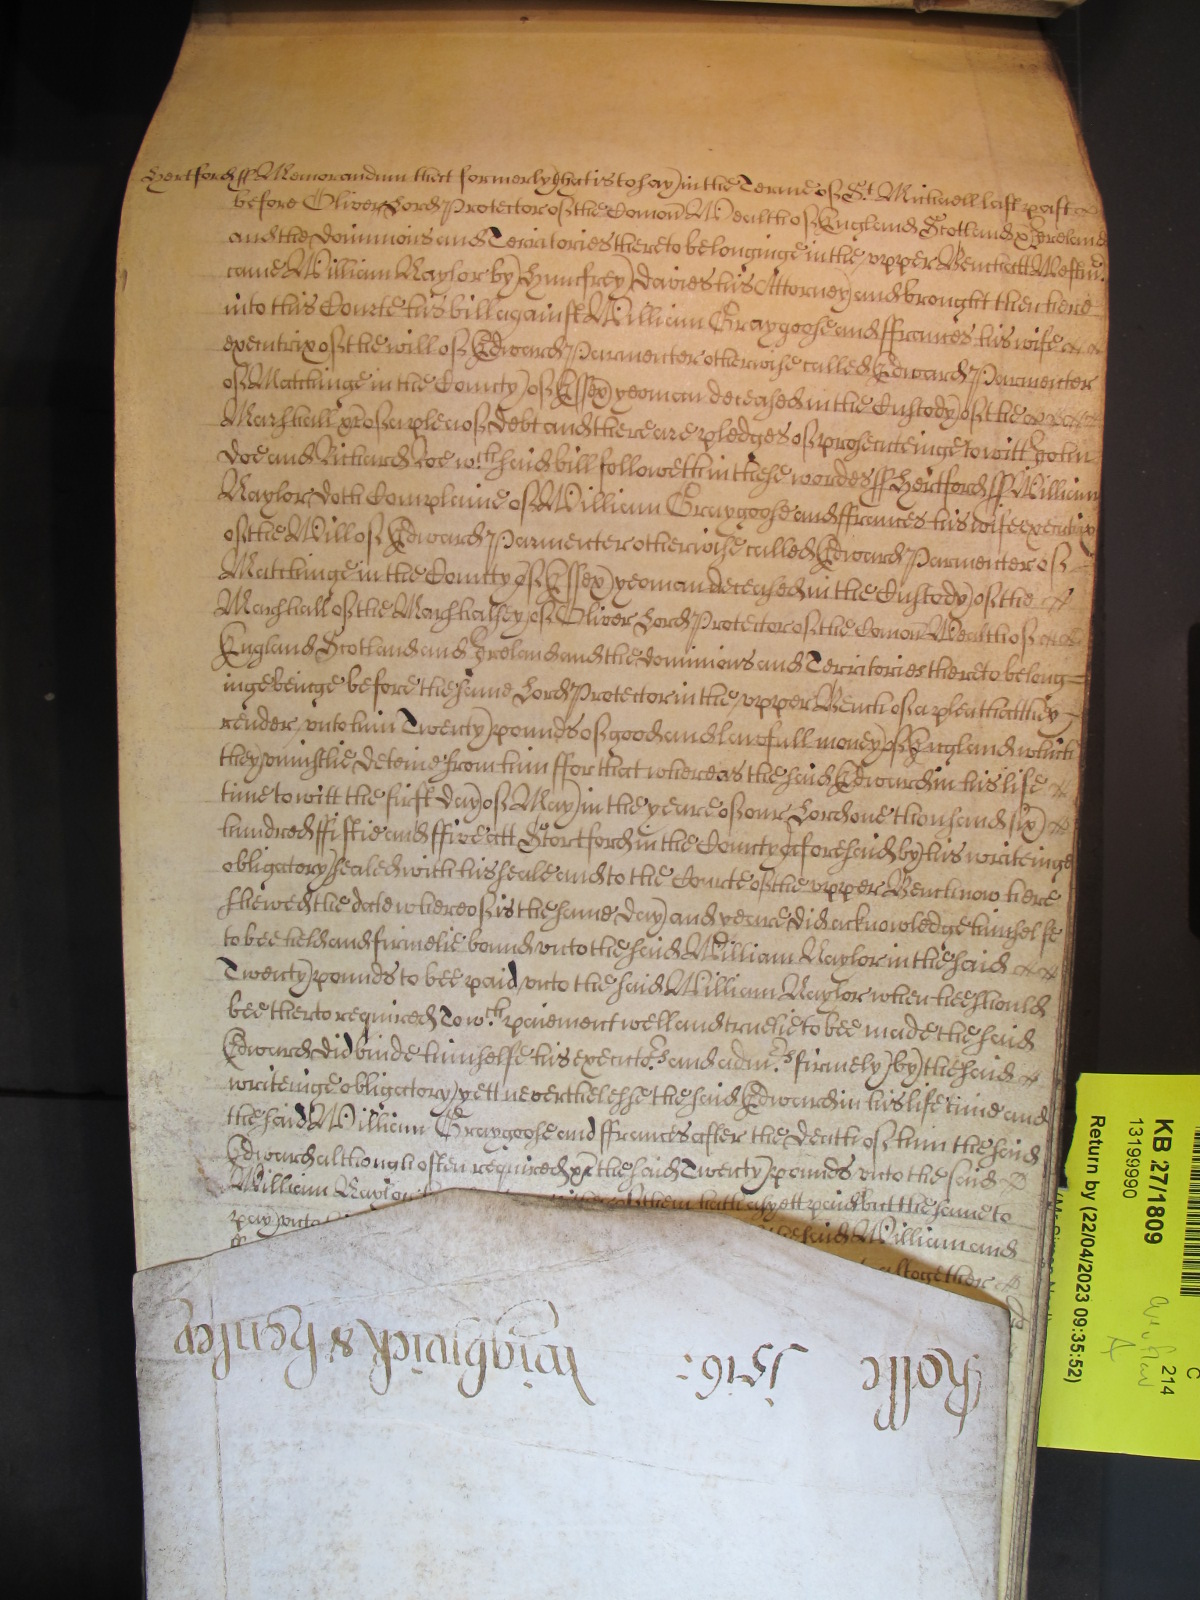 Hertford ss Memorandum that formerly (that is to say) in the Terme of St. Michaell last past
before Oliver Lord Protector of the Comon Wealth of England Scotland & Ireland
and the dominions and Territories thereto belonginge in the upper Bench att Westm.
came William Naylor by Humfrey Davies his Attorney and brought then here
into this Courte his bill against William Graygoose and ffrances his wife
executrix of the will of Edward Parmenter otherwise called Edward Parmenter
of Matchinge in the County of Essex yeoman deceased in the Custody of the
Marshall &c of a plea of debt and there are pledges of prosecuteinge to witt John
Doe and Richard Roe wch said bill followeth in these wordes ss Hertford ss William
Naylor doth Complaine of William Graygoose and ffrances his wife executrix
of the Will of Edward Parmenter otherwise called Edward Parmenter of
Matchinge in the County of Essex yeoman deceased in the Custody of the
Marshall of the Marshalsey of Oliver Lord Protector of the Comon Wealth of
England Scotland and Ireland and the dominions and Territories thereto belong=
inge beinge before the same Lord Protector in the upper Bench of a plea that they
render unto him Twenty pounds of good and lawfull money of England which
they uniustlie deteine from him ffor that whereas the said Edward in his life
time to witt the first day of May in the yeare of our Lord one thousand six
hundred ffiftie and ffive att Stortford in the County aforesaid by his writeinge
obligatory sealed with his seale and to the Courte of the upper Bench now here
shewed the date whereof is the same day and yeare did acknowledge himselfe
to bee held and firmelie bound unto the said William Naylor in the said
Twenty pounds to bee paid unto the said William Naylor when hee should
bee therto required To wch paiement well and truelie to bee made the said
Edward did binde himselfe his executors and admrs firmely by the said
writeinge obligatory yett neverthelesse the said Edward in his life time and
the said William Graygoose and ffrances after the death of him the said
Edward although often required &c the said Twenty pounds unto the said
William Naylor them hath as yett paid but the same to
pay unto the said William and
altogether
Rolle 1516: Wighwick & Henley
KB 27/1809
13199990
Return by (22/04/2023 09:35:52)
C
214
A